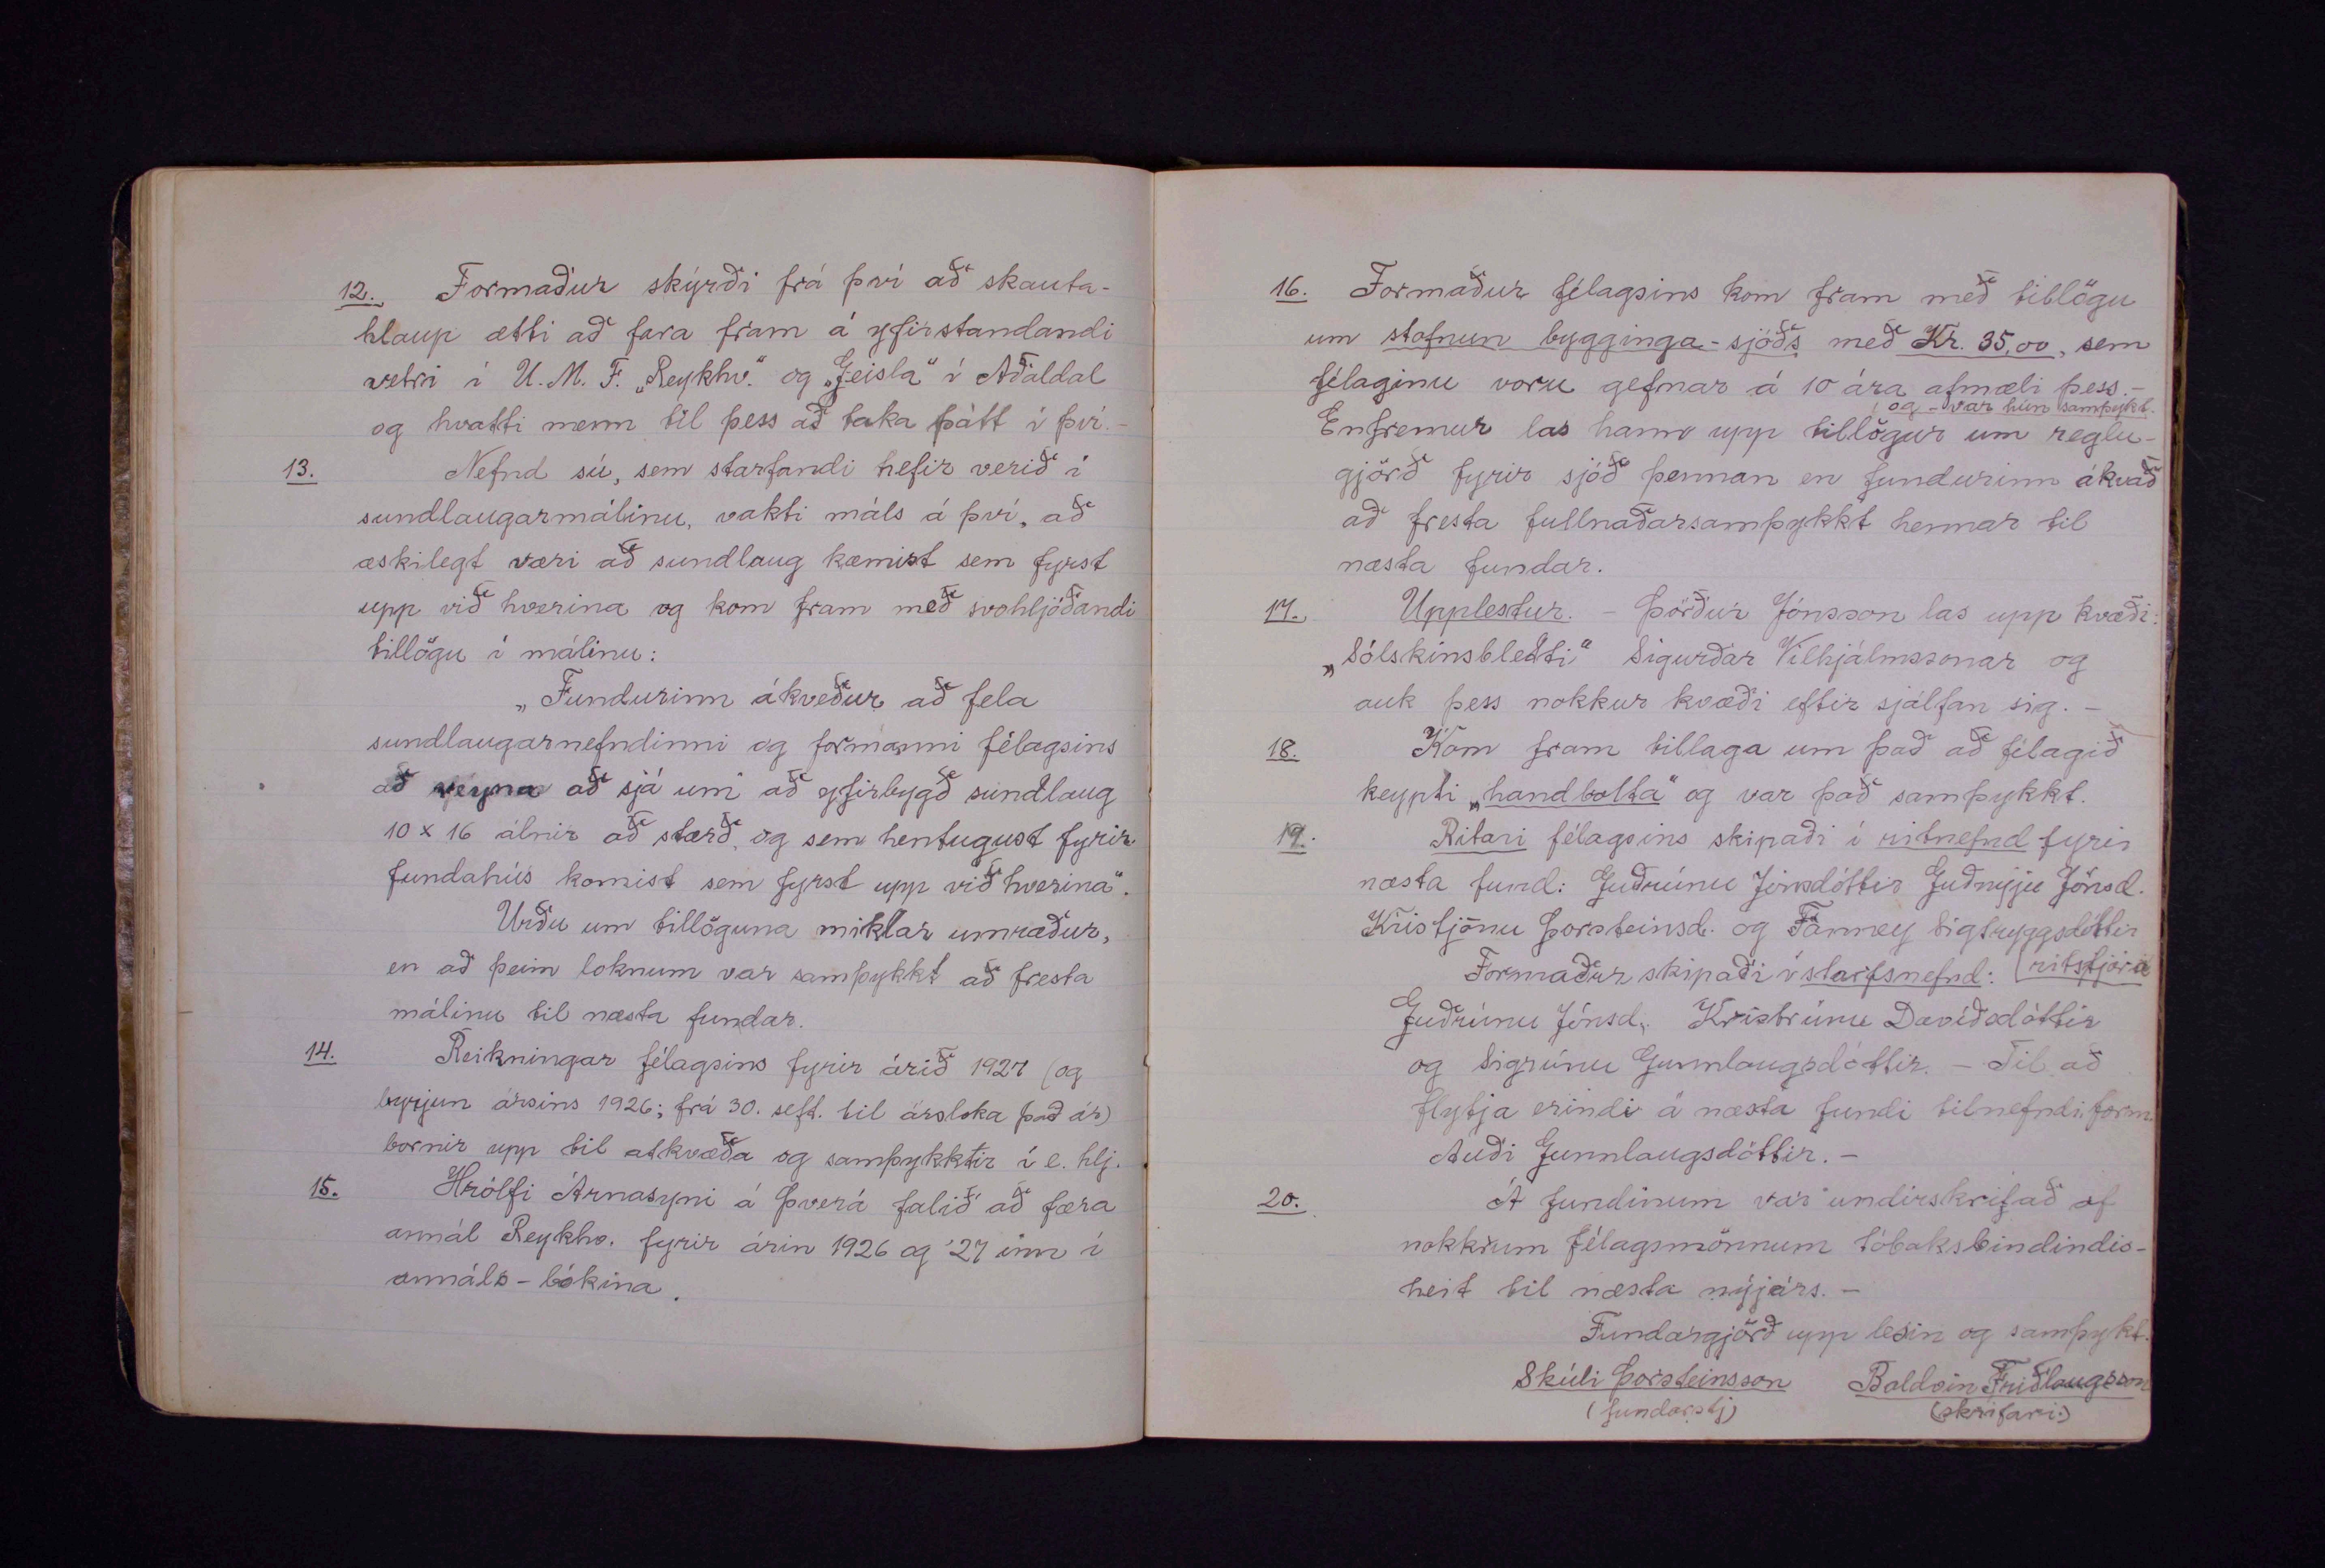 12. Formaður skýrði frá því að skauta-
hlaup ætti að fara fram á yfirstandandi
vetri í U. M. F. „Reykhv.“ og „Geisla“ í Aðaldal
og hvatti menn til þess að taka þátt í því. -
13. Nefnd sú, sem starfandi hefir verið í
sundlaugarmálinu, vakti máls á því, að
æskilegt væri að sundlaug kæmist sem fyrst
upp við hverina og kom fram með svohljóðandi
tillögu í málinu:
„Fundurinn ákveður að fela
sundlaugarnefndinni og formanni félagsins
að reyna að sjá um að yfirbygð sundlaug
10 x 16 álnir að stærð, og sem hentugust fyrir
fundahús komist sem fyrst upp við hverina“.
Urðu um tillöguna miklar umræður,
en að þeim loknum var samþykkt að fresta
málinu til næsta fundar.
14. Reikningar félagsins fyrir árið 1927 (og
byrjun ársins 1926; frá 30. seft. til ársloka það ár)
bornir upp til atkvæða og samþykktir í e. hlj.
15. Hrólfi Árnasyni á Þverá falið að færa
annál Reykhv. fyrir árin 1926 og '27 inn í
annáls-bókina.
16. Formaður félagsins kom fram með tillögu
um stofnun bygginga-sjóðs með Kr. 35,00, sem
félaginu voru gefnar á 10 ára afmæli þess. -
og - var hún samþykt.
Enfremur las hann upp tillögur um reglu-
gjörð fyrir sjóð þennan en fundurinn ákvað
að fresta fullnaðarsamþykkt hennar til
næsta fundar.
17. Upplestur. - Þórður Jónsson las upp kvæði:
„Sólskinsbletti“ Sigurðar Vilhjálmssonar og
auk þess nokkur kvæði eftir sjálfan sig. -
18. Kom fram tillaga um það að félagið
keypti „handbolta“ og var það samþykkt.
19. Ritari félagsins skipaði í ritnefnd fyrir
næsta fund: Guðrúnu Jónsdóttir Guðnýju Jónsd.
Kristjönu Þorsteinsd. og Fanney Sigtryggsdóttir
(ritstjóra
Formaður skipaði í starfsnefnd:
Guðrúnu Jónsd., Kristrúnu Davíðsdóttir
og Sigrúnu Gunnlaugsdóttir. - Til að
flytja erindi á næsta fundi tilnefndi form.
Auði Gunnlaugsdóttir. -
20. Á fundinum var undirskrifað af
nokkrum félagsmönnum tóbaksbindindis-
heit til næsta nýjárs. -
Fundargjörð upp lesin og samþykt.
Skúli Þorsteinsson Baldvin Friðlaugsson
(fundarstj) (skrifari)